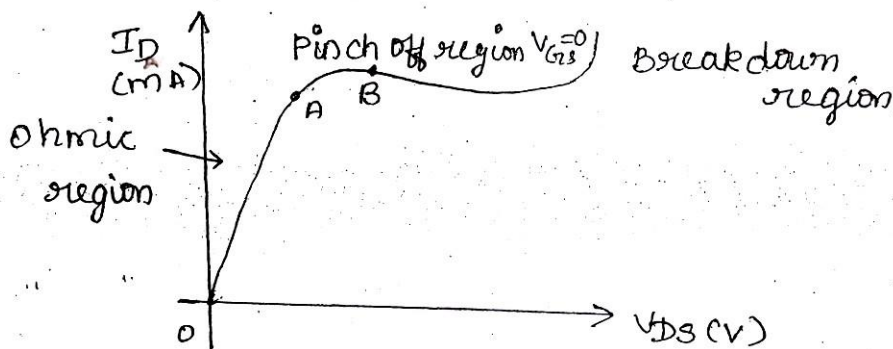 I_D
(mA)
Pinch off region V_GS=0
Breakdown
region
A
B
Ohmic
region
O
V_DS (V)